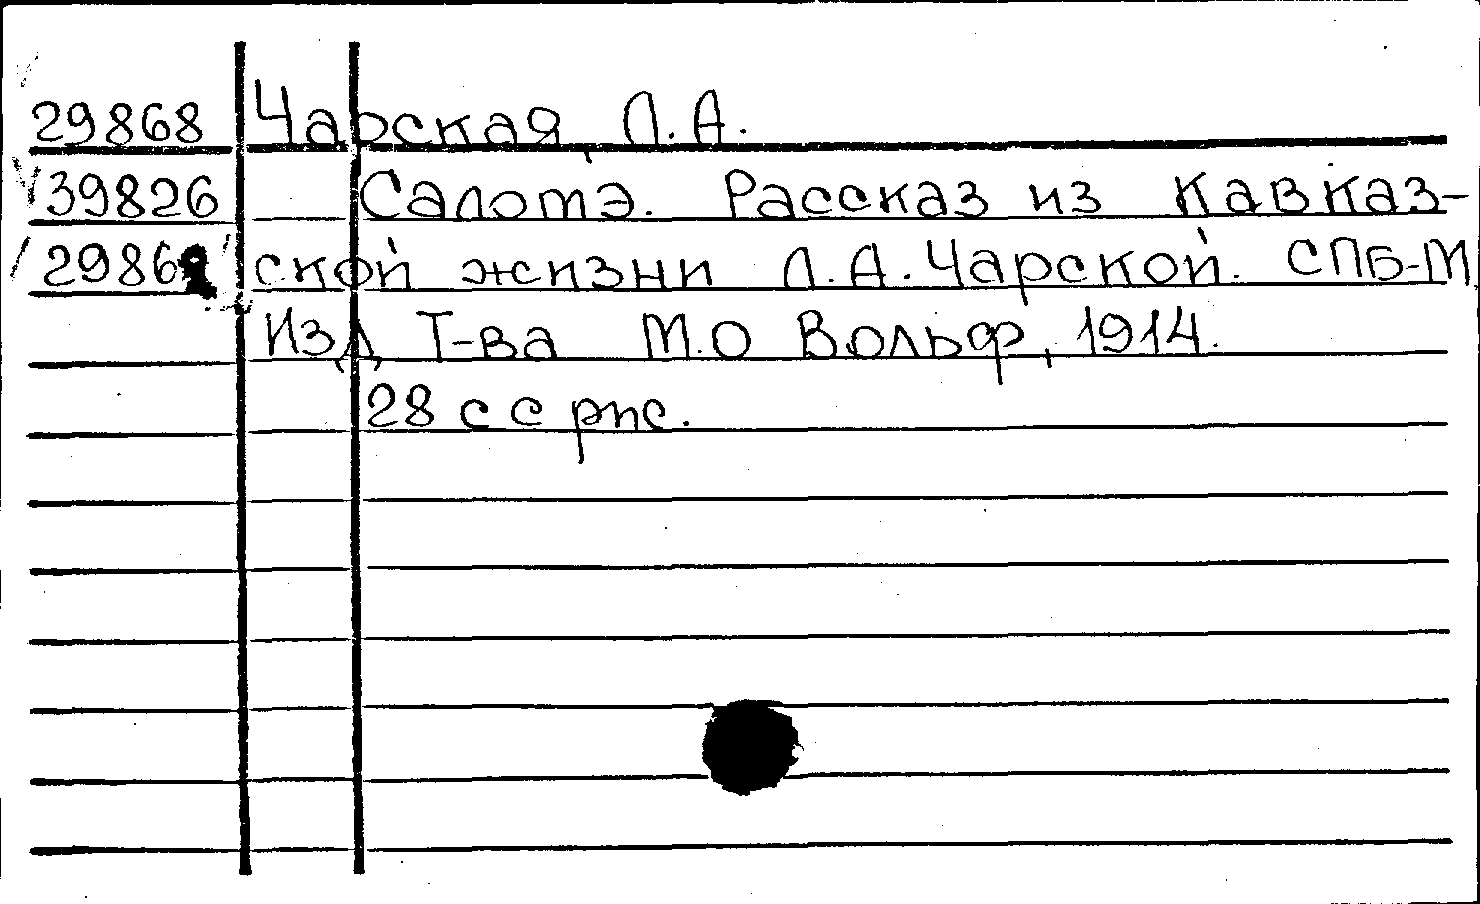 29868 Чарская, Л.А.
39826 Салотэ. Рассказ из Кавказ-
2986 ской жизни Л.А.Чарской. СПБ-М
Изд Т-ва М.О Вольф, 1914.
28 с с рис.